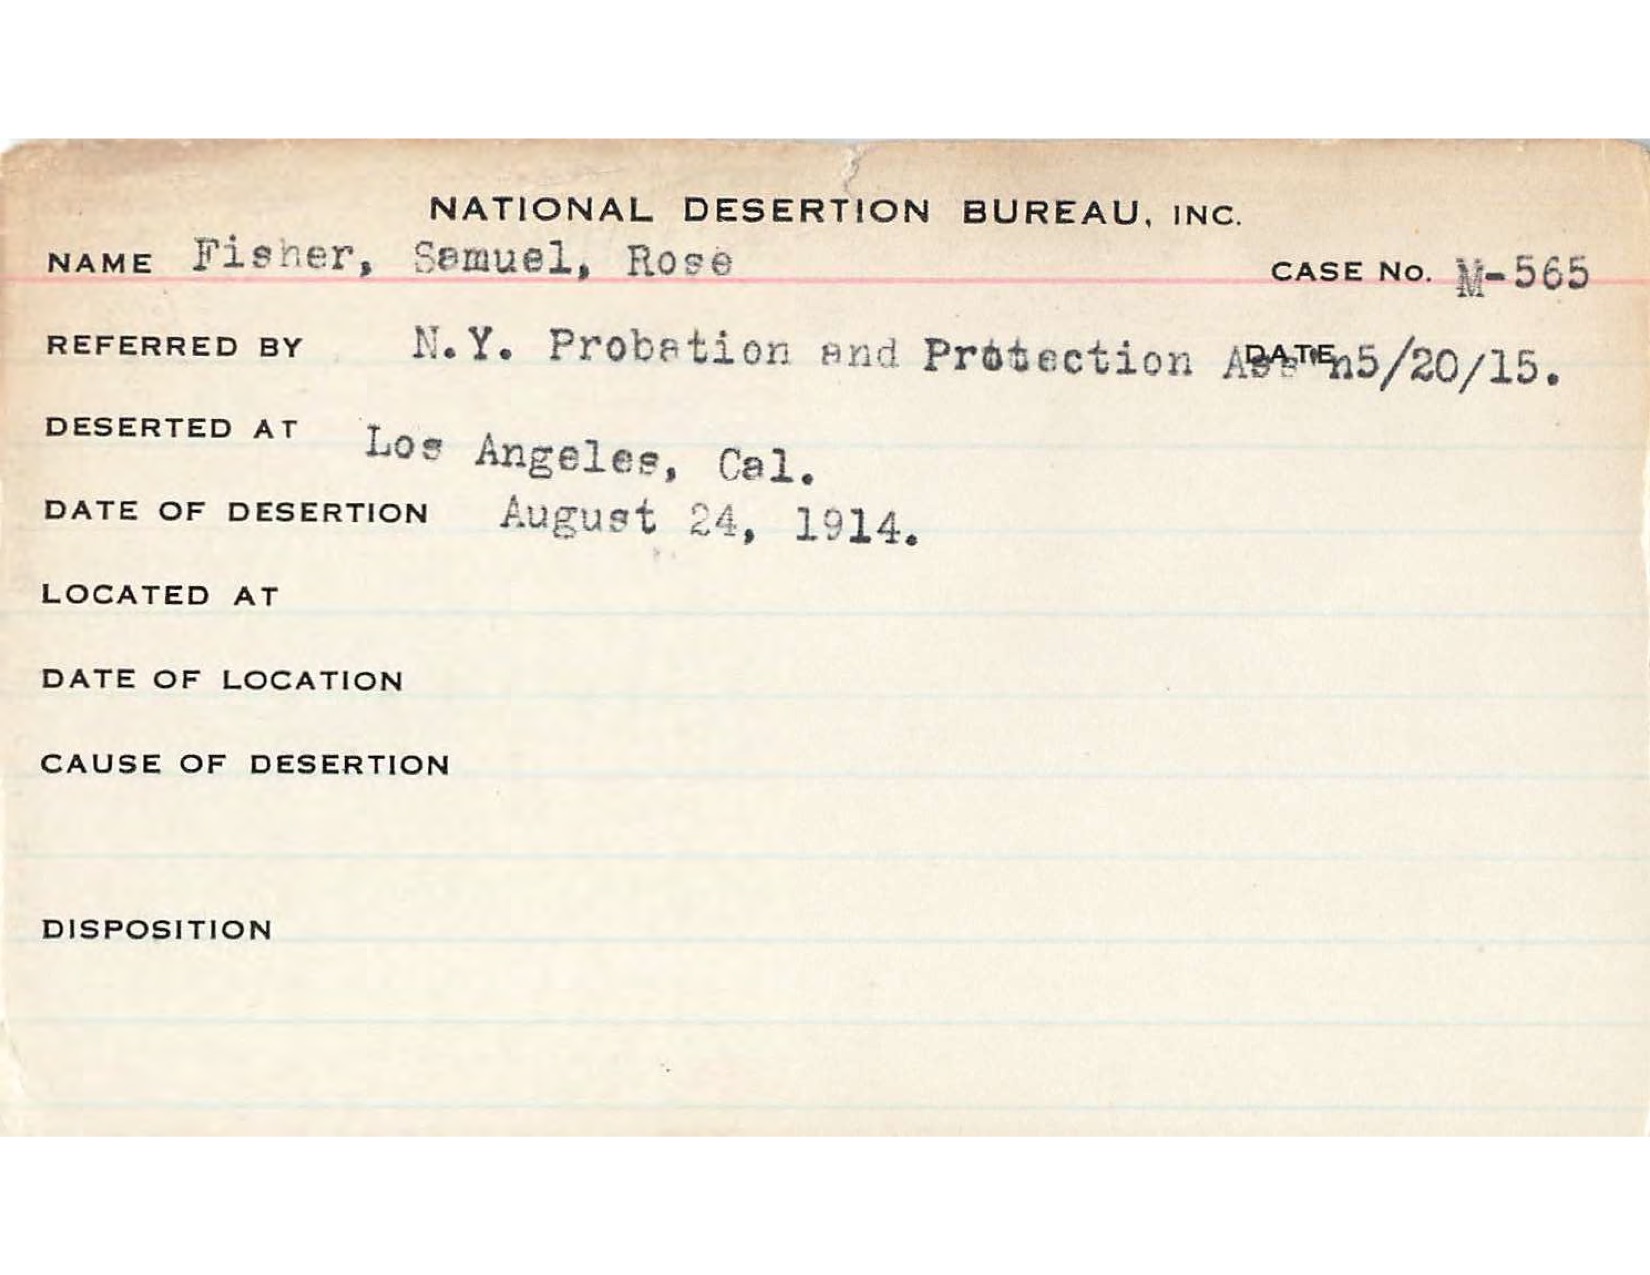 NATIONAL DESERTION BUREAU, INC.
NAME Fisher, Samuel, Rose CASE No. M-565
REFERRED BY N.Y. Probation and Protection Ass'n DATE 5/20/15.
DESERTED AT Los Angeles, Cal.
DATE OF DESERTION August 24, 1914.
LOCATED AT
DATE OF LOCATION
CAUSE OF DESERTION
DISPOSITION